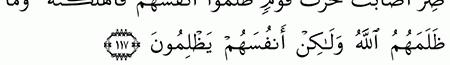 صِرٌّ أَصَابَتْ حَرْثَ قَوْمٍ ظَلَمُوٓا۟ أَنفُسَهُمْ فَأَهْلَكَتْهُ ۚ وَمَا
ظَلَمَهُمُ ٱللَّهُ وَلَـٰكِنْ أَنفُسَهُمْ يَظْلِمُونَ ﴿١١٧﴾